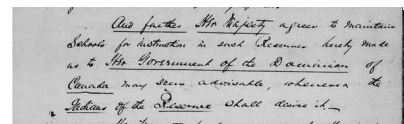 And further Her Majesty agrees to maintain
Schools for instruction in such Reserves hereby made
as to Her Government of the Dominion of
Canada may seem advisable, whenever the
Indians of the Reserve shall desire it.